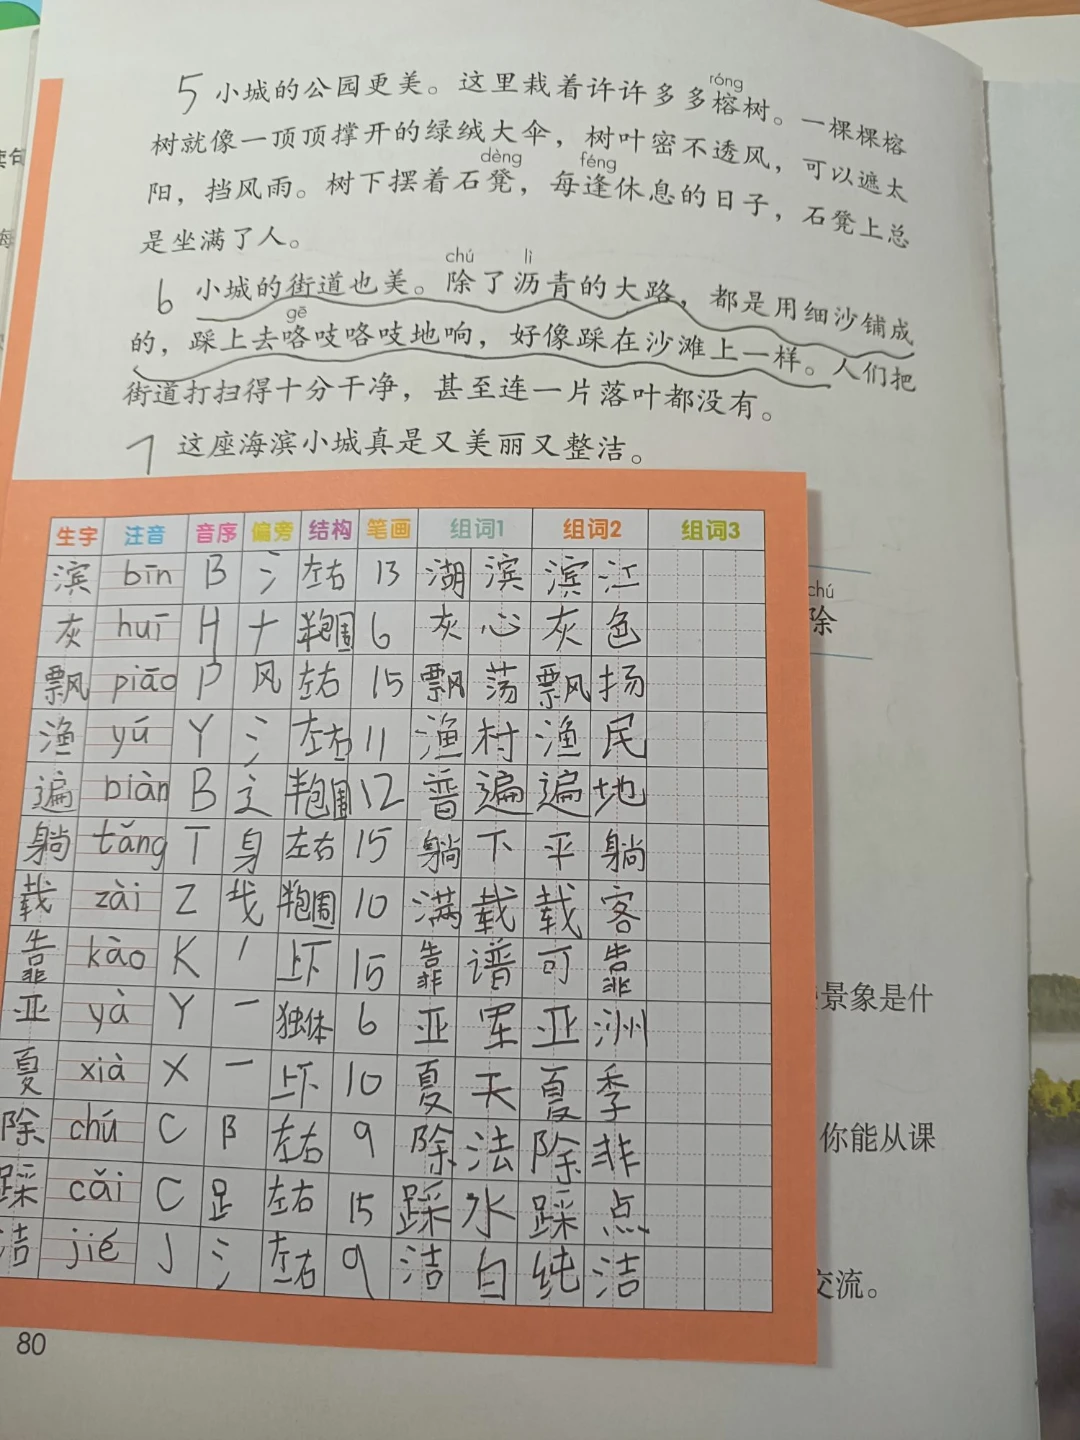 5 小城的公园更美。这里栽着许许多多榕树。一棵棵榕
róng
树就像一顶顶撑开的绿绒大伞，树叶密不透风，可以遮太
dèng féng
阳，挡风雨。树下摆着石凳，每逢休息的日子，石凳上总
是坐满了人。
chú lì
6 小城的街道也美。除了沥青的大路，都是用细沙铺成
gē
的，踩上去咯吱咯吱地响，好像踩在沙滩上一样。人们把
街道打扫得十分干净，甚至连一片落叶都没有。
7 这座海滨小城真是又美丽又整洁。
生字 注音 音序 偏旁 结构 笔画 组词1 组词2 组词3
滨 bīn B 氵 左右 13 湖滨 滨江
灰 huī H ナ 半包围 6 灰心 灰色
飘 piāo P 风 左右 15 飘荡 飘扬
渔 yú Y 氵 左右 11 渔村 渔民
遍 biàn B 辶 半包围 12 普遍 遍地
躺 tǎng T 身 左右 15 躺下 平躺
载 zài Z 半包围 10 满载 载客
靠 kào K 丿 上下 15 靠谱 可靠
亚 yà Y 一 独体 6 亚军 亚洲
夏 xià X 一 上下 10 夏天 夏季
除 chú C 阝 左右 9 除法 除非
踩 cǎi C 足 左右 15 踩水 踩点
洁 jié J 氵 左右 9 洁白 纯洁
80
chú
除
景象是什
你能从课
交流。